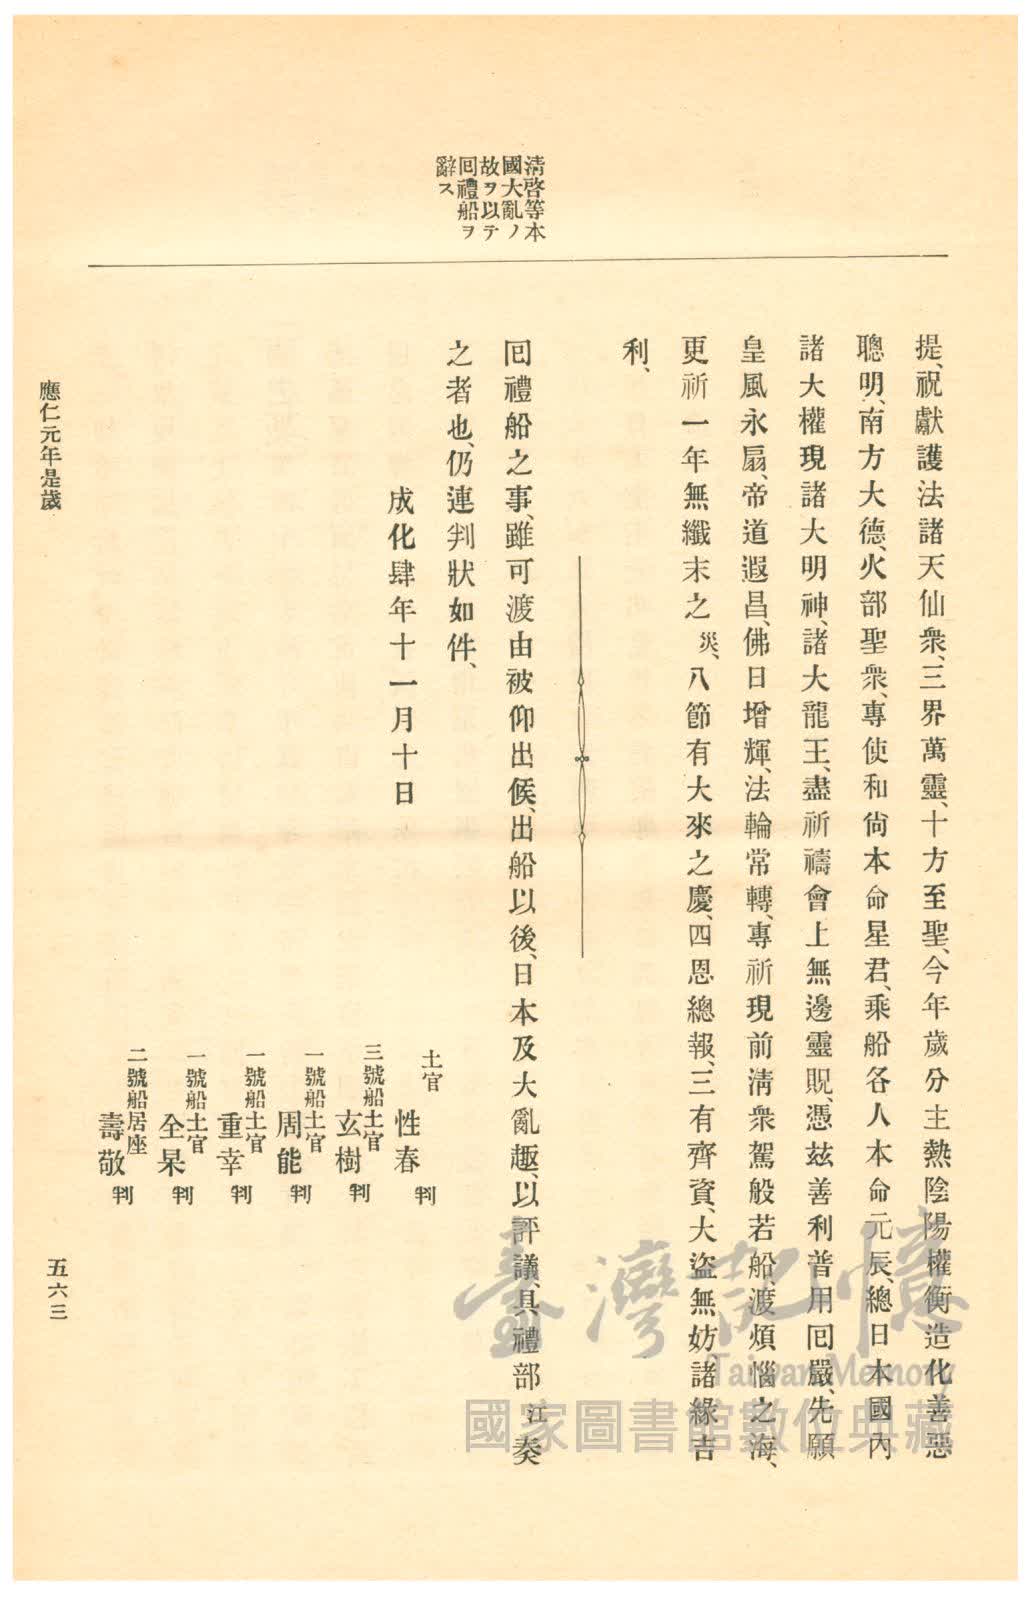 清啓等本
國大亂ノ
故ヲ以テ
囘禮船ヲ
辭ス
提、祝獻護法諸天仙衆、三界萬靈、十方至聖、今年歲分主熱陰陽權衡造化善惡
聰明、南方大德、火部聖衆、專使和尙本命星君、乘船各人本命元辰、總日本國內
諸大權現諸大明神、諸大龍王、盡祈禱會上無邊靈貺、憑玆善利普用囘嚴、先願
皇風永扇、帝道遐昌、佛日增輝、法輪常轉、專祈現前淸衆駕般若船、渡煩惱之海、
更祈一年無纖末之災、八節有大來之慶、四恩總報、三有齊資、大盜無妨、諸緣吉
利、
囘禮船之事、雖可渡由被仰出候、出船以後、日本及大亂趣、以評議、具禮部江奏
之者也、仍連判狀如件、
成化肆年十一月十日
土官 性春 判
三號船土官 玄樹 判
一號船土官 周能 判
一號船土官 重幸 判
一號船土官 全杲 判
二號船居座 壽敬 判
應仁元年是歲
五六三
臺灣記憶
Taiwan Memory
國家圖書館數位典藏